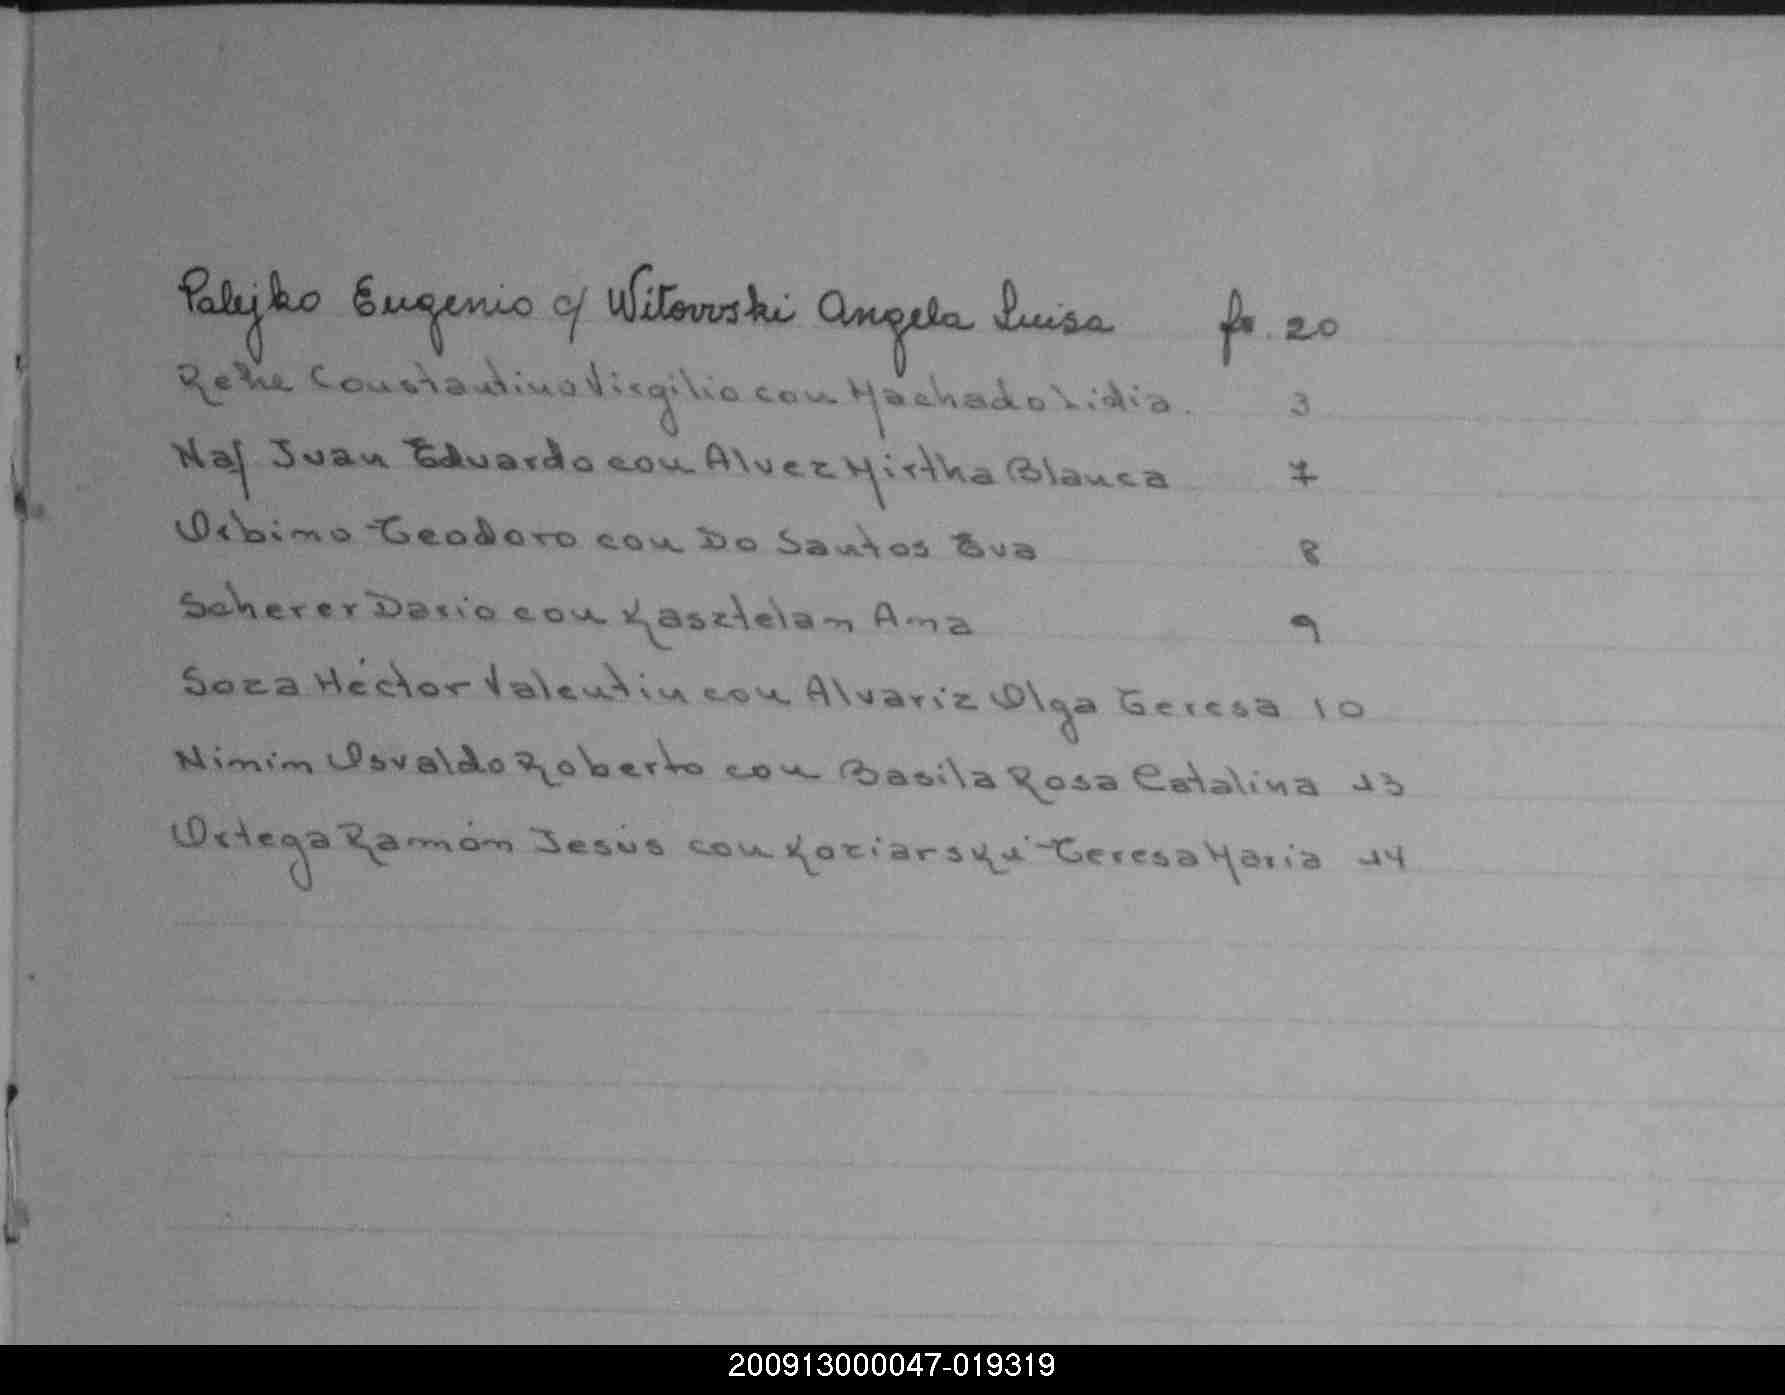 Palejko Eugenio c/ Witovvski Angela Luisa fo. 20
Rehe Constantino Virgilio con Machado Lidia. 3
Naf Juan Eduardo con Alvez Mirtha Blanca 7
Orbino Teodoro con Do Santos Eva 8
Scherer Dario con Kasztelan Ana 9
Soza Héctor Valentin con Alvariz Olga Teresa 10
Nimin Osvaldo Roberto con Basila Rosa Catalina 13
Ortega Ramón Jesús con Koziarski Teresa Maria 14
200913000047-019319